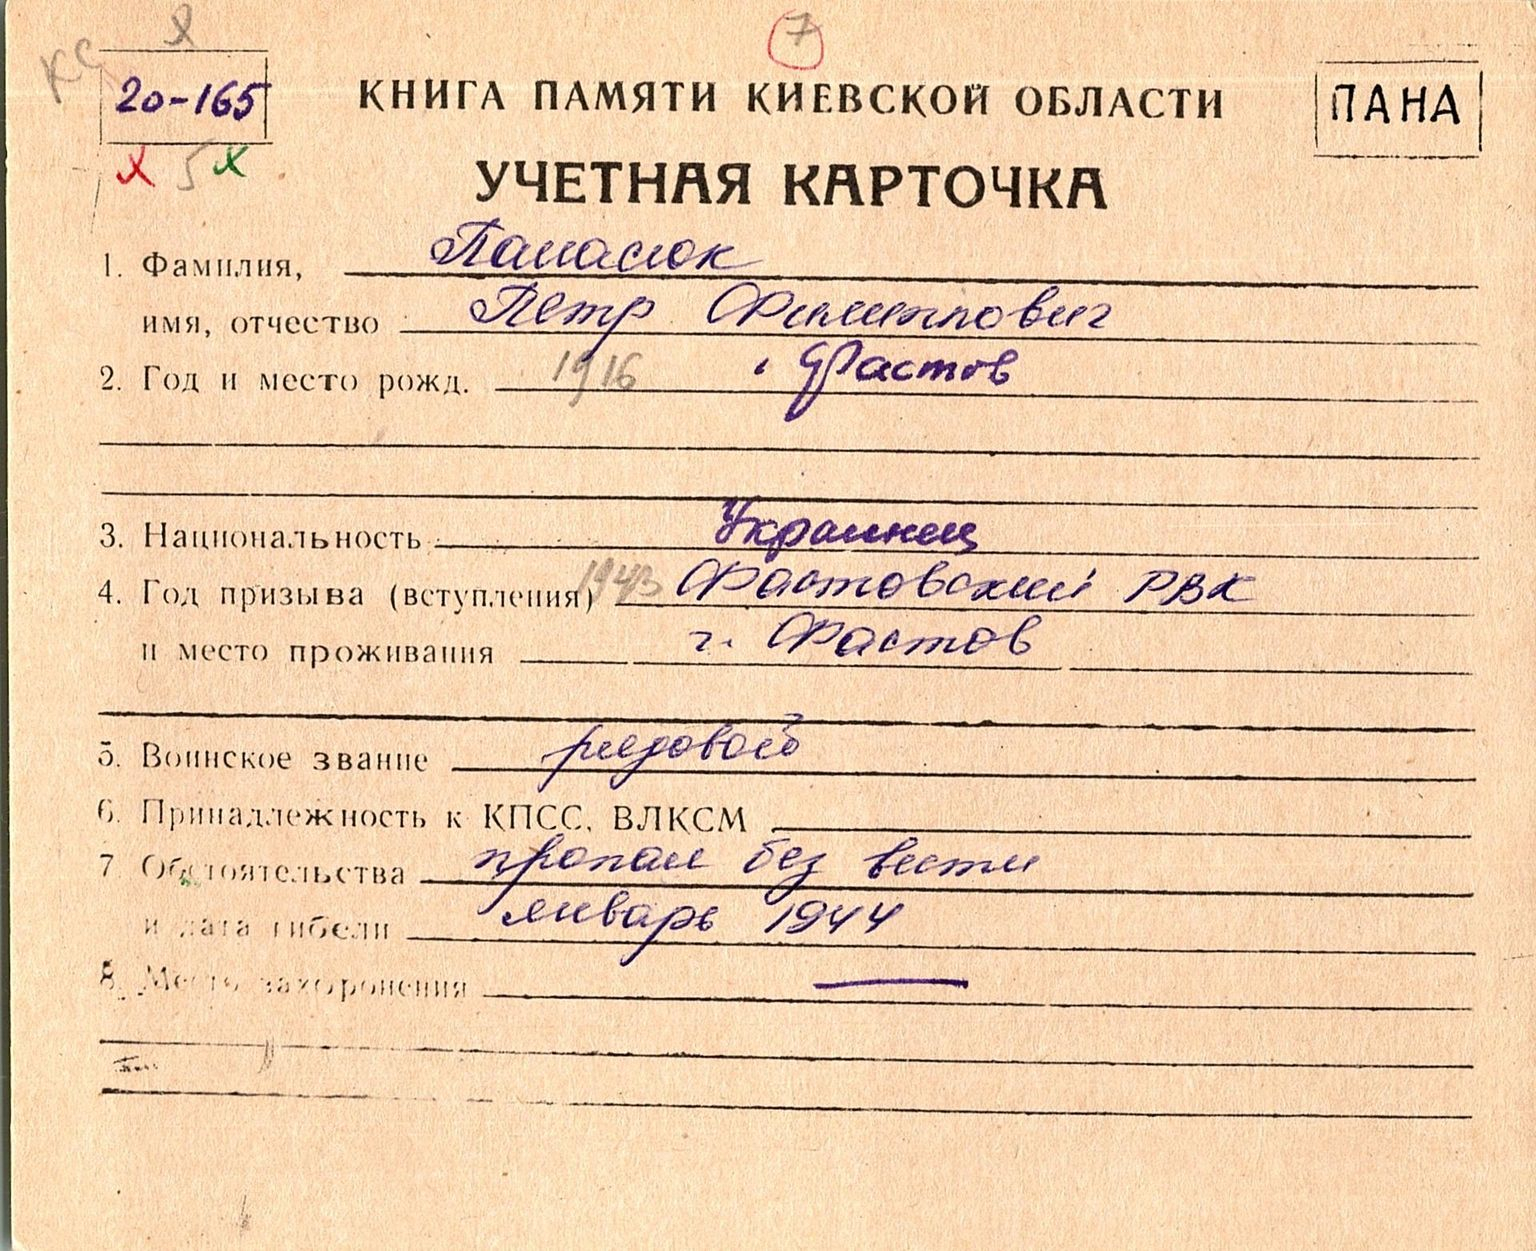 7
КС
20-165
КНИГА ПАМЯТИ КИЕВСКОЙ ОБЛАСТИ
ПАНА
х 5 х
УЧЕТНАЯ КАРТОЧКА
1. Фамилия, Панасюк
имя, отчество Петр Филиппович
2. Год и место рожд. 1916 г Фастов
3. Национальность Украинец
4. Год призыва (вступления) 1943 Фастовский РВК
и место проживания г. Фастов
5. Воинское звание рядовой
6. Принадлежность к КПСС, ВЛКСМ
7 Обстоятельства пропал без вести
и дата гибели январь 1944
8. Место захоронения —